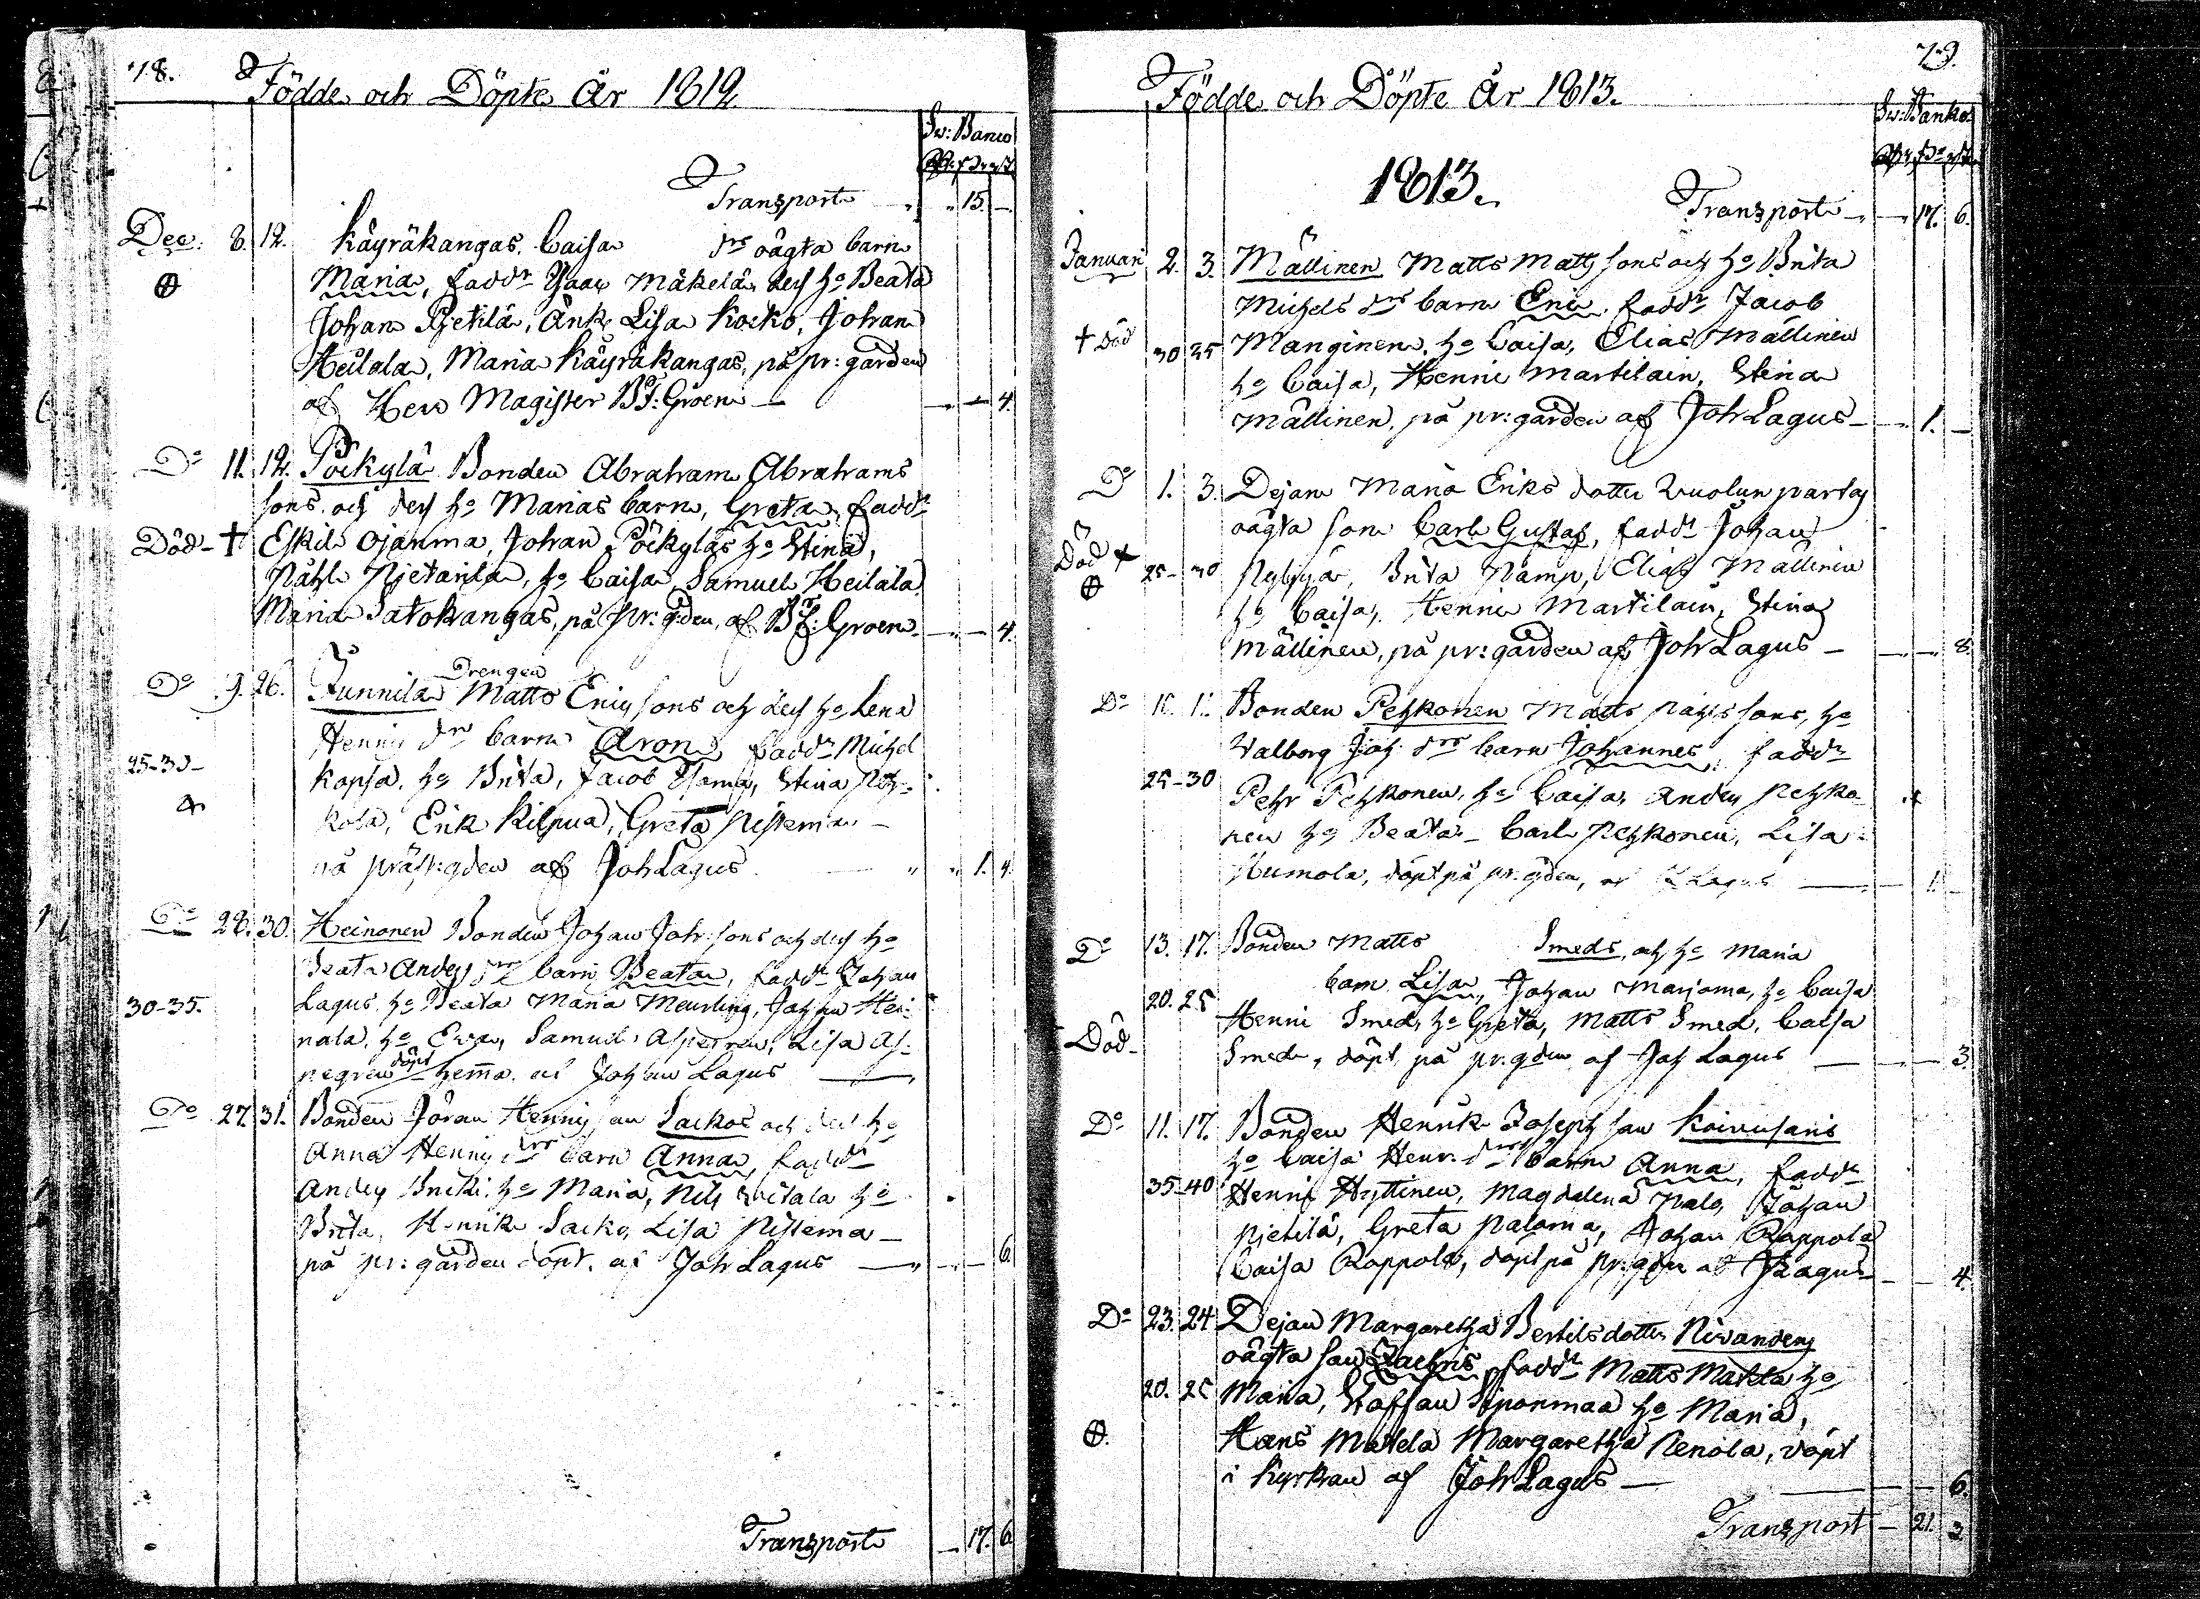 78.
Födde och Döpte År 1812
Sw: Banco
Transport " " 15. –
Dec: 8. 12. Käyräkangas Caisa drs oägta barn
Maria, fadd: Isaac Mäkelä, des h: Beata
Johan Pietilä, Änk. Lisa Kocko, Johan
Heilala, Maria Käyräkangas, på pr: gården
af Herr Magister B J: Groen — 4.
Do 11. 12. Pöckylä Bonden Abraham Abrahams
sons och des h: Marias barn, Greta, fadd:
Död - † Eskil Ojanma, Johan Pöckyläs h: Stina,
Pietarila, h: Caisa, Samuel Heilala
Maria Satokangas, på pr: gden, af B J: Groen — 4.
Drengen
Do 9. 26. Junnila Matts Erics sons och des h: Lena
Henrics drs barn Aron, fadd: Michel
25-30- Kopsa, h: Brita, Jacob Stina
Erik Kilpua, Greta Pisteman —
på präst:gden af Joh Lagus " " 1. 4.
Do 28. 30. Heinonen Bonden Johan Joh: sons och des h:
Beata Anders drs barn Beata, fadd: Johan
30-35. Lagus, h: Beata Maria Meurling, Johan Hei-
nala, h: Eva, Samuel Aspegren, Lisa As-
döpt
pegren hemma af Johan Lagus —
Do 27. 31. Bonden Jöran Henrics son Sackos och des h:
Anna Henrics drs barn Anna, fadd:
Anders h: Maria, Nils h:
Brita, Henrik Sacko, Lisa Pistema —
på pr: gården döpt. af Joh Lagus — 6
Transport — 17. 6
79.
Födde och Döpte År 1813.
Sw: Banko
1813.
Transport — 17. 6.
Januari 2. 3. Mällinen Matts Matts sons och h: Brita
Michels drs barn Eric, fadd: Jacob
† Död 30 35 Manginen, h: Caisa, Elias Mällinen
h: Caisa, Henric Martilain, Stina
Mällinen, på pr: gården af Joh Lagus — 1. –
Do 1. 3. Dejan Maria Eriks dotter
oägta son Carl Gustaf, fadd: Johan
Död † 25- 30 Brita Elias Mällinen
h: Caisa, Henric Martilain, Stina
Mällinen, på pr: gården af Joh Lagus — 8.
Do Bonden Pehkonen Matts Påhls sons, h:
Valborg Joh: drs barn Johannes, fadd:
25-30 Pehr Pehkonen, h: Caisa, Anders Pehko-
nen h: Beata — Carl Pehkonen, Lisa
Humola, döpt på pr: gden, af J Lagus — 1. –
Do 13. 17. Bonden Matts Smeds, och h: Maria
barn Lisa, Johan Marjoma, h: Caisa
20. 25 Henric Smed, h: Greta, Matts Smed, Caisa
Död- Smed, döpt på pr: gden af Joh Lagus — 3.
Do 11. 17. Bonden Henrik Joseph son Koivusaris
h: Caisa Henr: drs barn Anna, fadd:
35-40 Henric Hyttinen, Magdalena Palo, Johan
Pietilä, Greta Paloma, Johan Rappola
Caisa Rappola, döpt på pr: gden af J Lagus — 4.
Do 23. 24 Dejan Margaretha Bertils dotter Nivanders
oägta son Zachris fadd: Matts Matela h:
20. 25 Maria, Staffan Siponmaa h: Maria,
Hans Matela Margaretha Renola, döpt
i Kyrkan af Joh Lagus — 6.
Transport — 21. 3